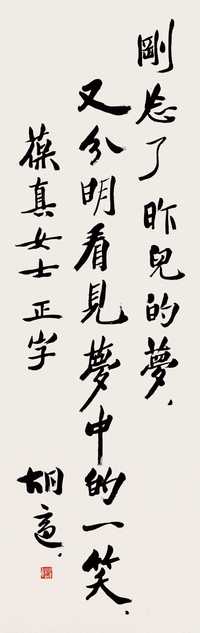 剛忘了昨兒的夢.
又分明看見夢中的一笑.
葆真女士 正字
胡適.